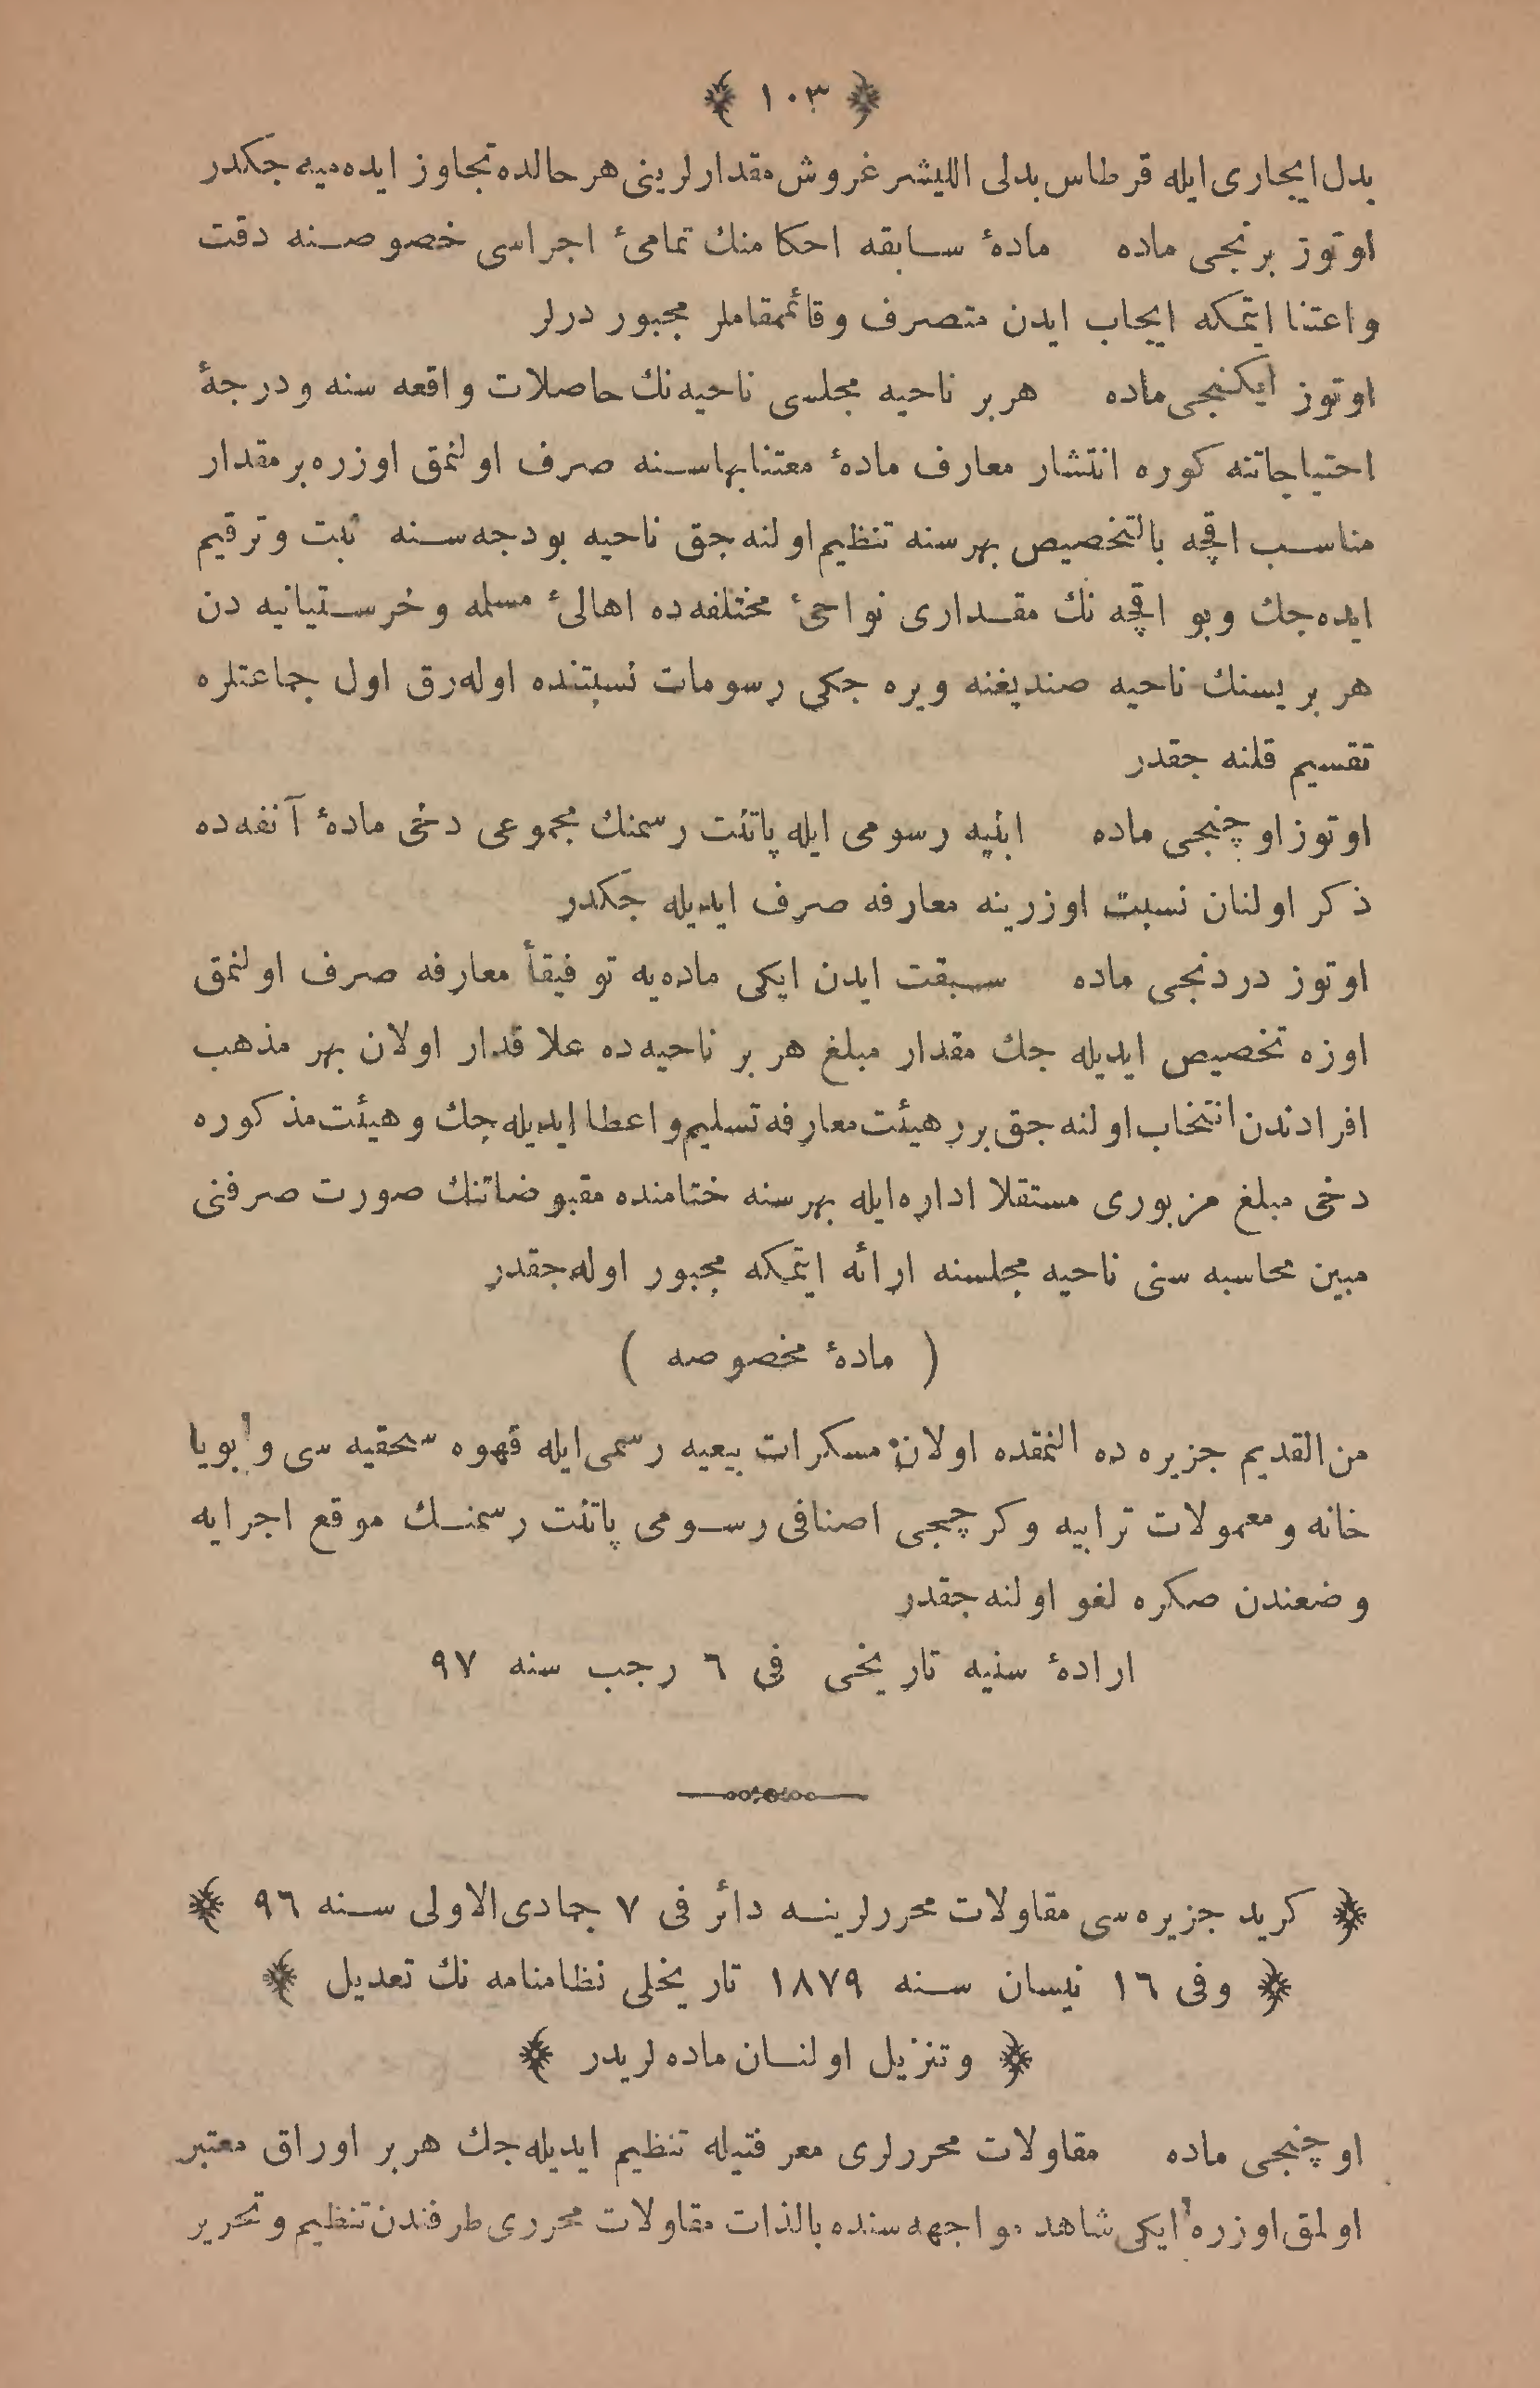 ﴿ ١٠٣ ﴾
بدل ايجارى ايله قرطاس بدلى الليشر غروش مقدارلرينى هر حالده تجاوز ايده‌ميه جكدر
اوتوز برنجى ماده مادهٔ سابقه احكامنك تمامئ اجراسى خصوصنه دقت
واعتنا ايتمكه ايجاب ايدن متصرف وقائممقاملر مجبور درلر
اوتوز ايكنجى ماده هر بر ناحيه مجلسى ناحيه نك حاصلات واقعه سنه ودرجهٔ
احتياجاتنه كوره انتشار معارف مادهٔ معتنابهاسنه صرف اولنمق اوزره بر مقدار
مناسب اقچه بالتخصيص بهر سنه تنظيم اولنه جق ناحيه بودجه سنه ثبت وترقيم
ايده‌جك وبو اقچه نك مقدارى نواحئ مختلفه ده اهالئ مسلمه وخرستيانيه دن
هر بريسنك ناحيه صنديغنه ويره جكى رسومات نسبتنده اوله‌رق اول جماعتلره
تقسيم قلنه جقدر
اوتوز اوچنجى ماده ابنيه رسومى ايله پاتنت رسمنك مجموعى دخى مادهٔ آنفه ده
ذكر اولنان نسبت اوزرينه معارفه صرف ايديله جكدر
اوتوز دردنجى ماده سبقت ايدن ايكى ماده‌يه توفيقاً معارفه صرف اولنمق
اوزه تخصيص ايديله جك مقدار مبلغ هر بر ناحيه‌ده علاقدار اولان بهر مذهب
افرادندن انتخاب اولنه جق برر هيئت معارفه تسليم واعطا ايديله جك وهيئت مذكوره
دخى مبلغ مزبورى مستقلا اداره ايله بهر سنه ختامنده مقبوضاتنك صورت صرفنى
مبين محاسبه سنى ناحيه مجلسنه ارائه ايتمكه مجبور اوله‌جقدر
( مادهٔ مخصوصه )
من القديم جزيره ده النمقده اولان مسكرات بيعيه رسمى ايله قهوه سحقيه سى و بويا
خانه ومعمولات ترابيه وكرچيجى اصنافى رسومى پاتنت رسمنك موقع اجرايه
وضعندن صكره لغو اولنه جقدر
ارادهٔ سنيه تاريخى فى ٦ رجب سنه ٩٧
﴿ كريد جزيره‌سى مقاولات محررلرينه دائر فى ٧ جمادى الاولى سنه ٩٦ ﴾
﴿ وفى ١٦ نيسان سنه ١٨٧٩ تاريخلى نظامنامه نك تعديل ﴾
﴿ وتنزيل اولنان ماده لريدر ﴾
اوچنجى ماده مقاولات محررلرى معرفتيله تنظيم ايديله‌جك هر بر اوراق معتبر
اولمق اوزره ايكى شاهد مواجهه سنده بالذات مقاولات محررى طرفندن تنظيم وتحرير